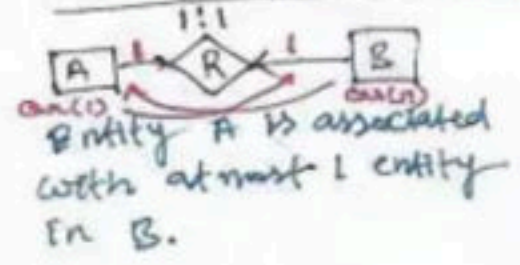 1:1
A 1 R 1 B
Entity A is associated
with atmost 1 entity
in B.